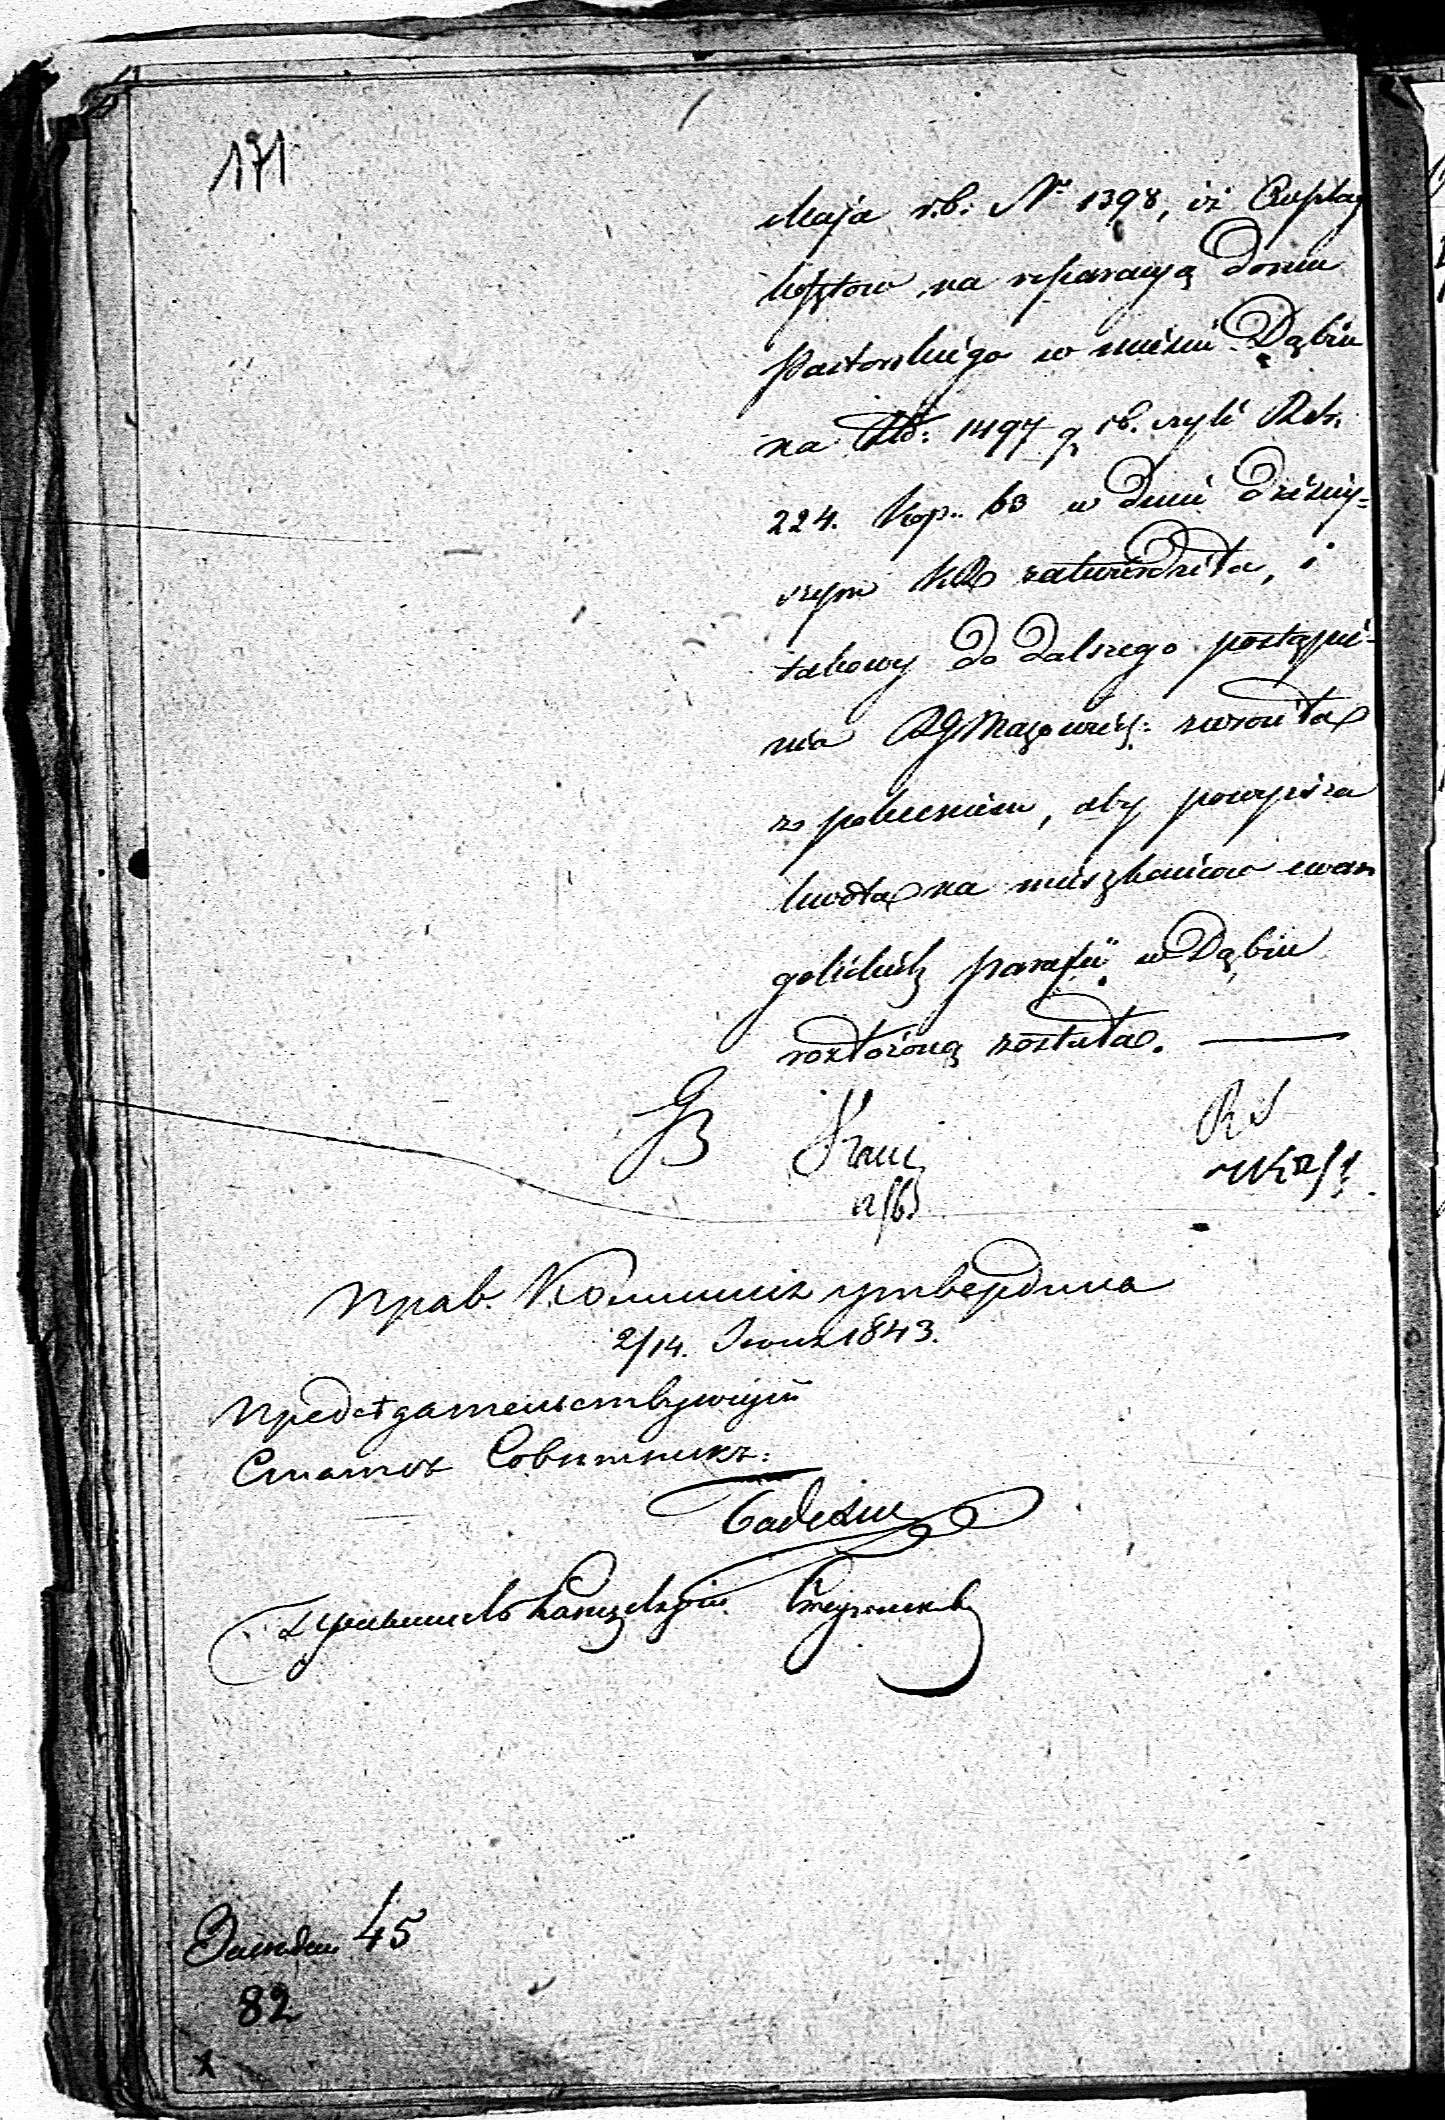 171
Maja r.b. Nr 1398, iż Rozkład
kosztow na reparacyą domu
Pastorskiego w mieście Dąbiu
na Złł: 1497 g 16. czyli Rsr.
224. kop. 63 w dniu dzisiey=
szym KR zatwierdziła, i
takowy do dalszego postąpie=
nia RG Mazowiec: zwrociła
z poleceniem, aby powyższa
kwota na mieszkańcow ewan
gelickich parafii w Dąbiu
rozłożoną została. —
GB
RS
Прав. Коммисія утвердила
2/14. Іюня 1843.
Предсѣдательствующій
Статск Совѣтникъ:
Правитель Канцеляріи
Заседан 45
82
x